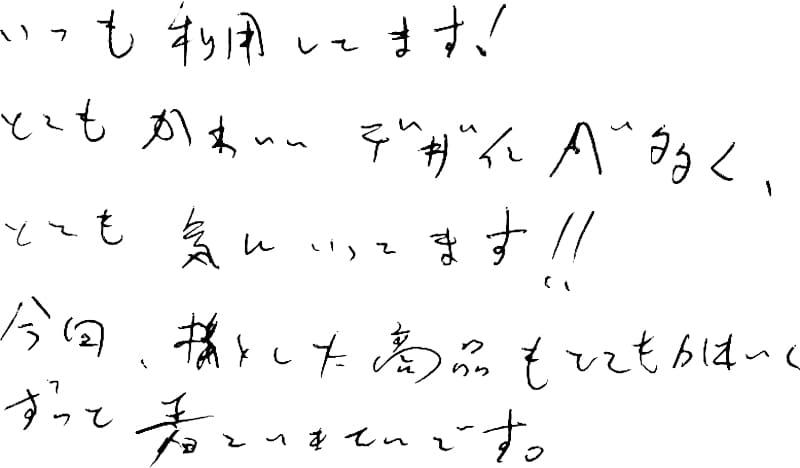 いつも利用してます!
とてもかわいいデザインが多く、
とても気にいってます!!
今回、購入した商品もとてもかわいく
ずっと着ていきたいです。